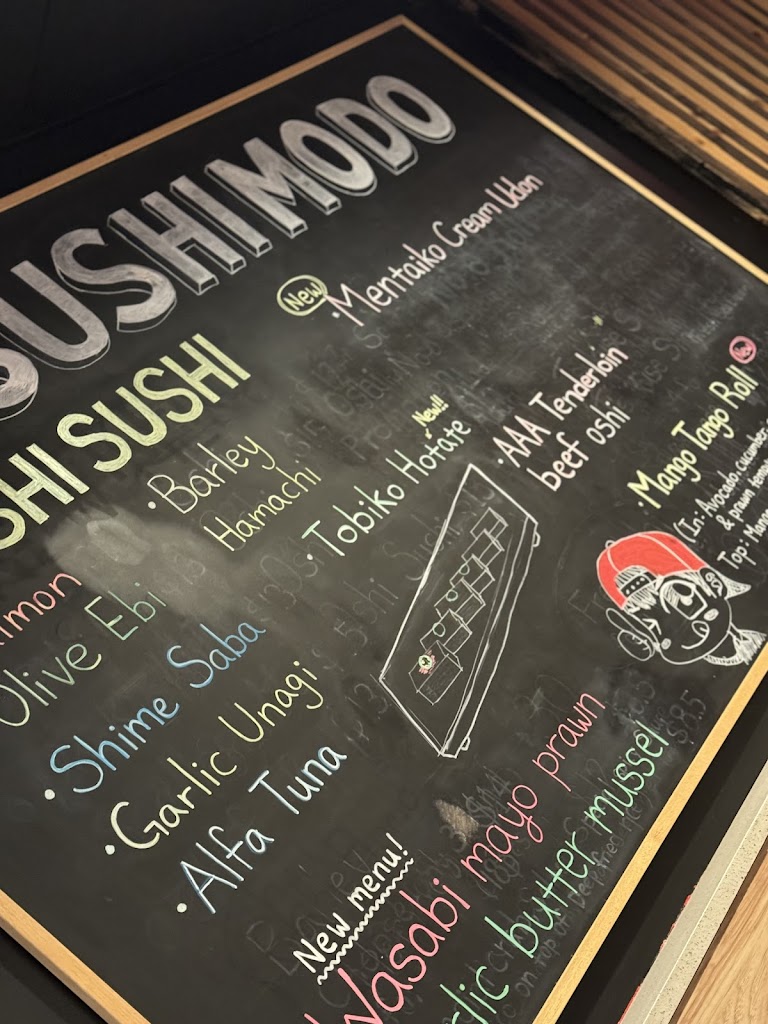 SUSHIMODO
New
• Mentaiko Cream Udon
SHI SUSHI
• Barley
Hamachi
New!!
• Tobiko Hotate
• AAA Tenderloin
beef oshi
• Mango Tango Roll
(In: Avocado, cucumber
& prawn
Top: Mang
Olive Ebi
• Shime Saba
• Garlic Unagi
• Alfa Tuna
New menu!
Wasabi mayo prawn
lic butter mussel